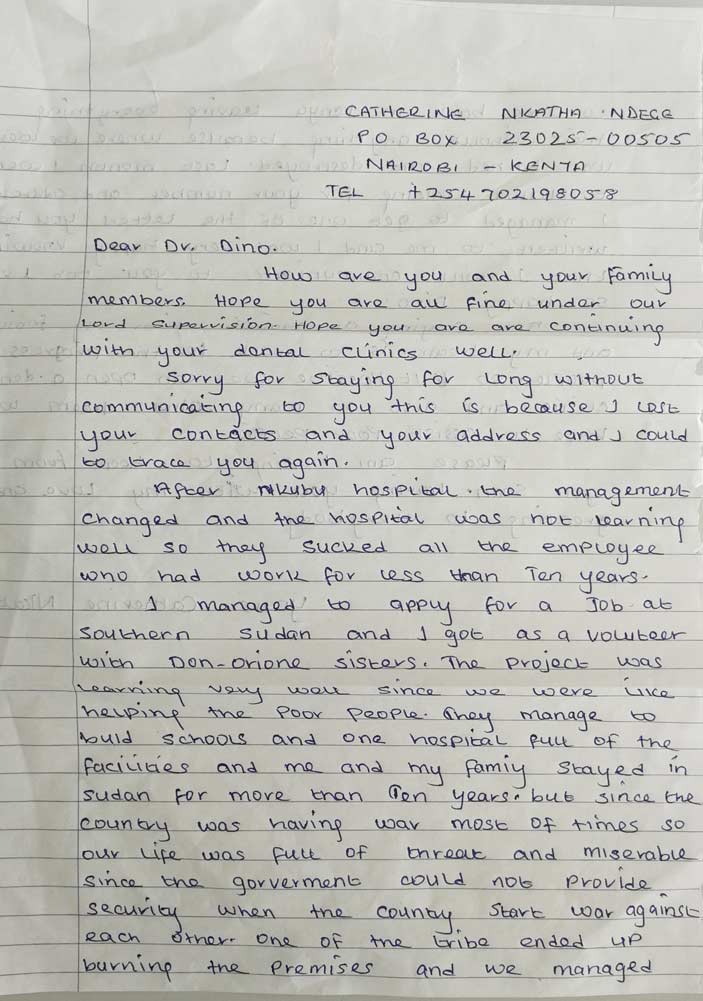 CATHERINE NKATHA NDEGE
PO BOX 23025-00505
NAIROBI - KENYA
TEL +254702198058
Dear Dr. Dino.
How are you and your Family
members. Hope you are all fine under our
Lord supervision. Hope you are are continuing
with your dental clinics well.
Sorry for staying for long without
communicating to you this is because I lost
your contacts and your address and I could
to trace you again.
After Nkubu hospital. the management
changed and the hospital was not learning
well so they sucked all the employee
who had work for less than Ten years.
I managed to apply for a Job at
Southern Sudan and I got as a voluteer
with Don-Orione sisters. The project was
learning very well since we were like
helping the poor people. They manage to
buld schools and one hospital full of the
facilities and me and my famiy stayed in
Sudan for more than Ten years. but since the
country was having war most of times so
our life was full of threat and miserable
since the gorverment could not provide
security when the country start war against
each other. one of the tribe ended up
burning the premises and we managed